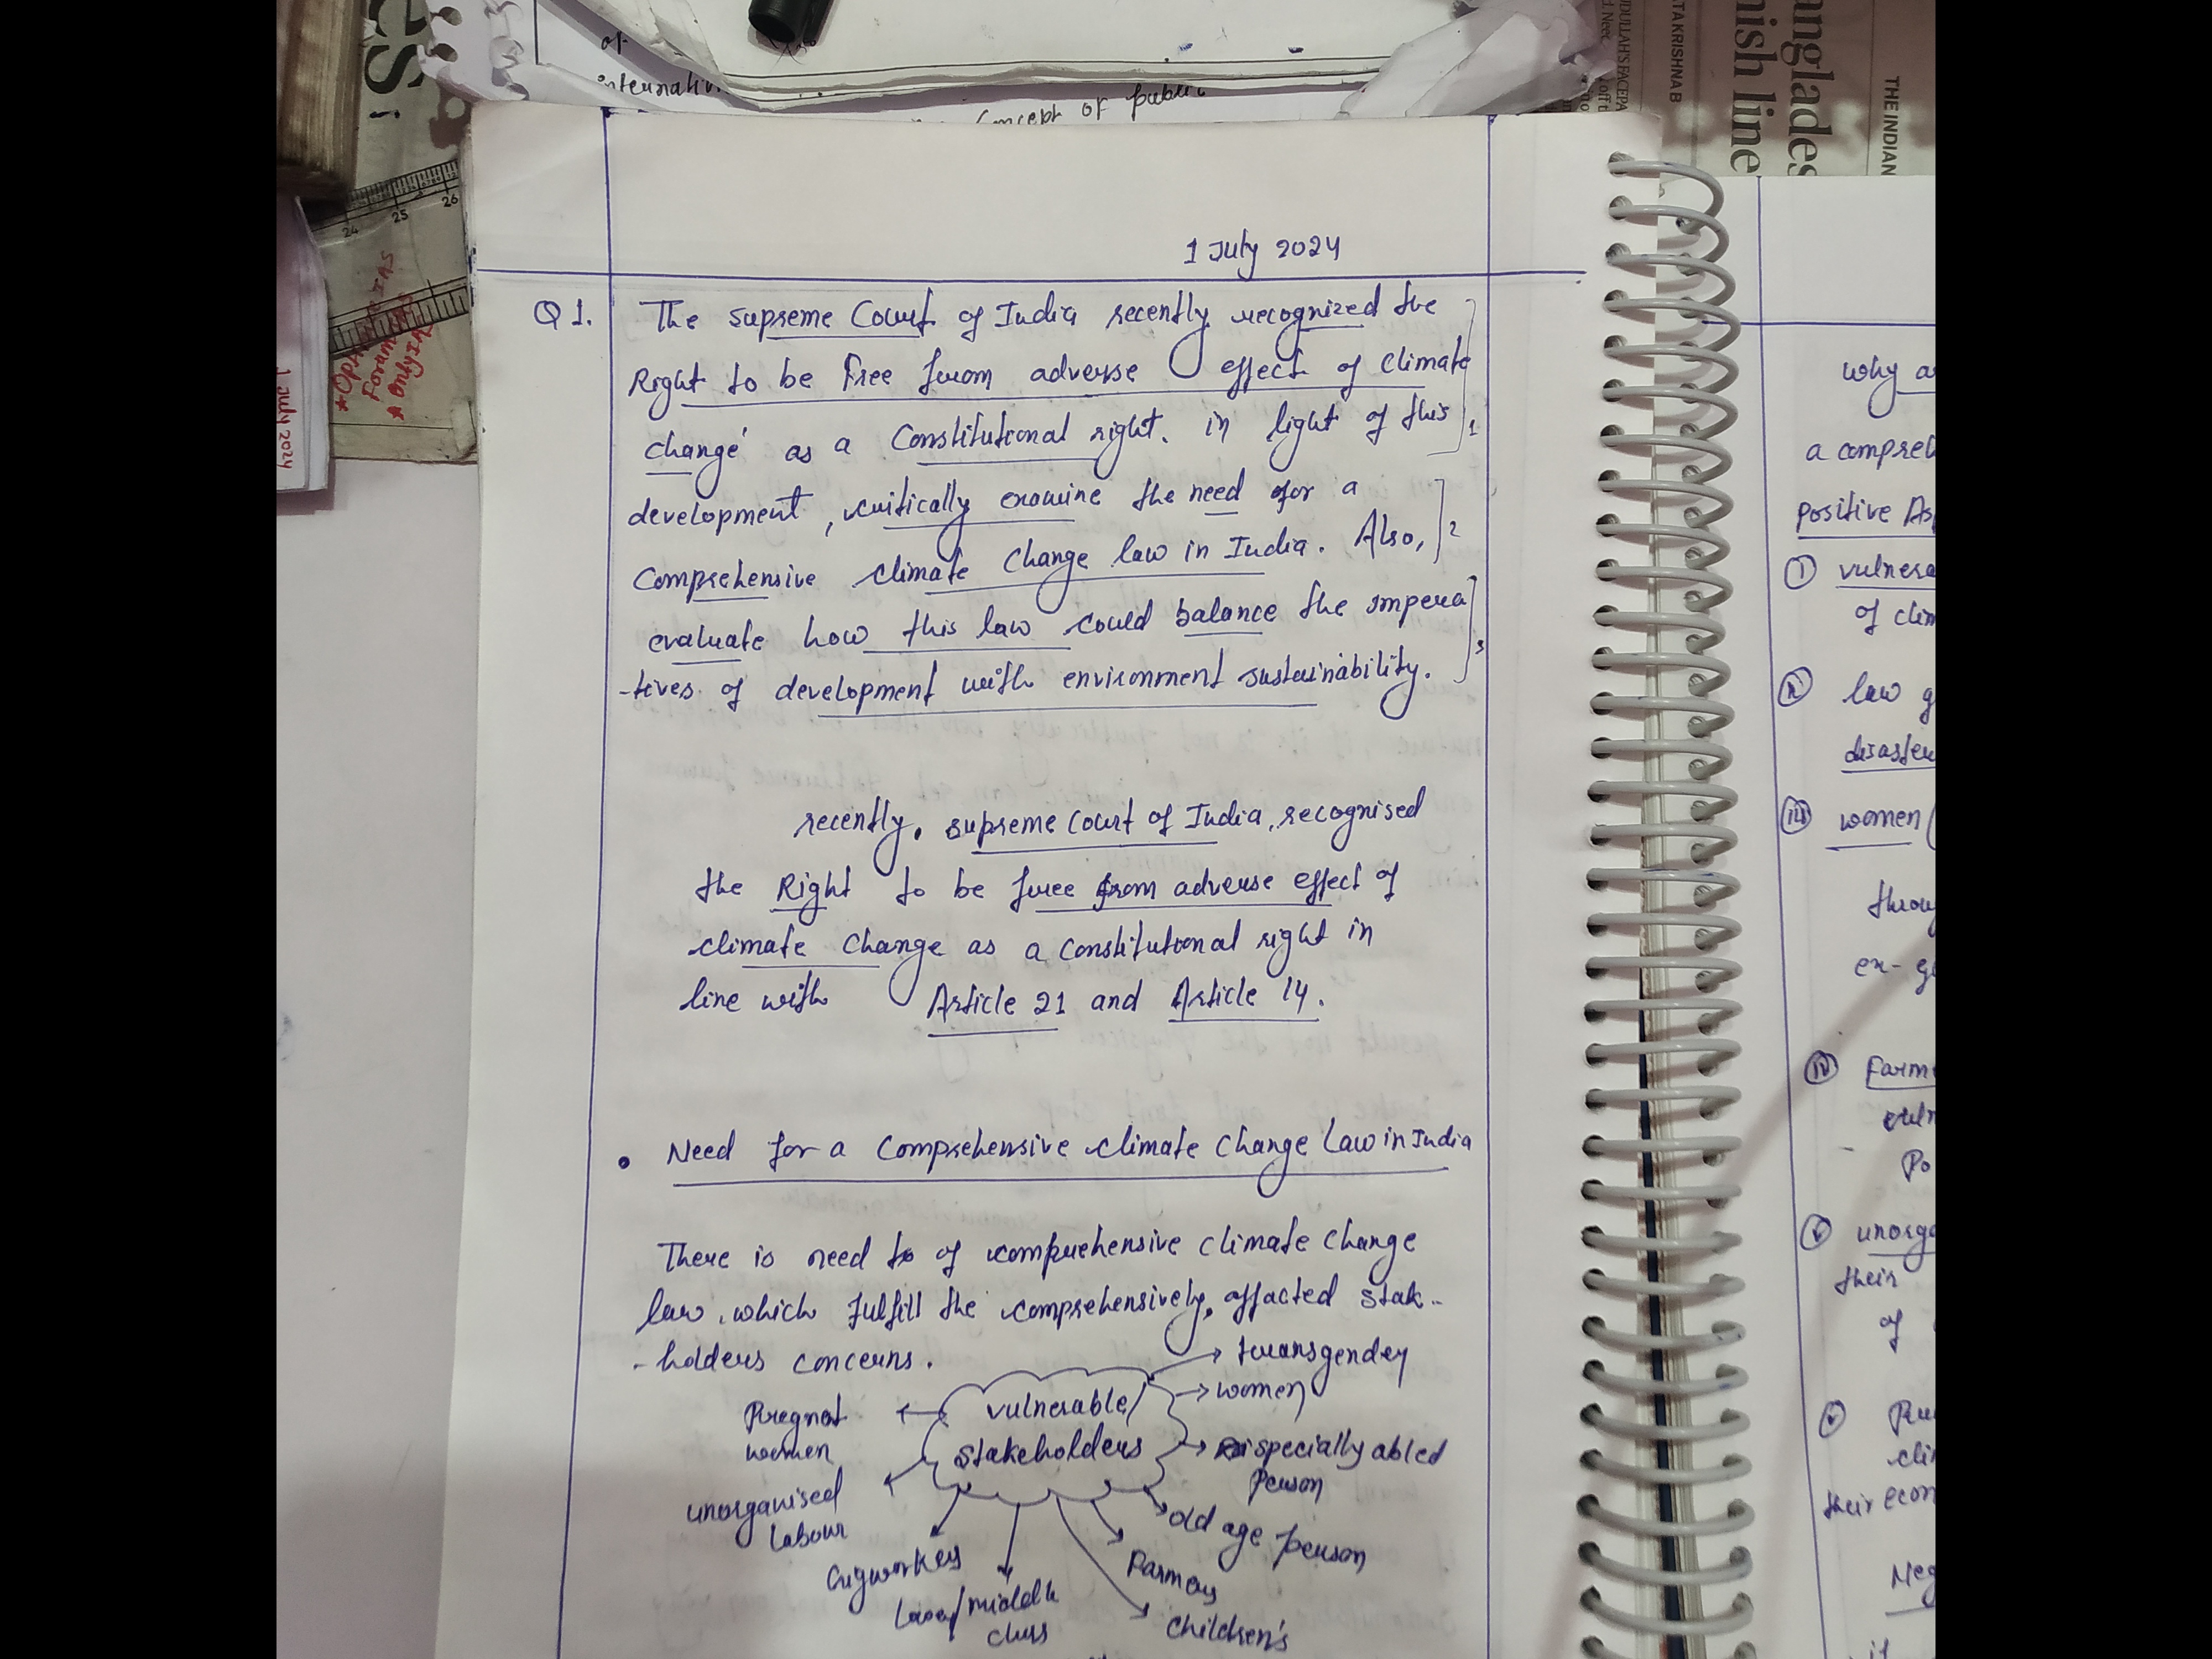 es:
of
internati
Concept of public
24 25 26
Forum IAS
1 July 2024
THE INDIAN
anglades
nish line
ATAKRISHNAB
DDULLAH'S FACEPA
d. Neer
1 July 2024
Q 1. The Supreme Court of India recently recognized the
Right to be Free from adverse effect of climate
change' as a Constitutional right. in light of this 1
development, critically examine the need for a
Comprehensive climate change law in India. Also, 2
evaluate how this law could balance the impera
-tives of development with environment sustainability. 3
recently, supreme Court of India, recognised
the Right to be free from adverse effect of
climate change as a constitutional right in
line with Article 21 and Article 14.
• Need for a Comprehensive climate change Law in India
There is need to of comprehensive climate change
law, which fulfill the comprehensively, affacted stak-
-holders concerns.
vulnerable/
stakeholders
transgender
women
specially abled
person
old age person
Farmers
children's
Lower/middle
class
Gigworkers
unorganised
labour
Pregnat
women
why a
a compreh
positive As
i vulnera
of clim
ii law g
disaster
iii women (
throu
ex- g
iv Farm
vuln
Po
v unorga
their
of
clim
their econ
Neg
if